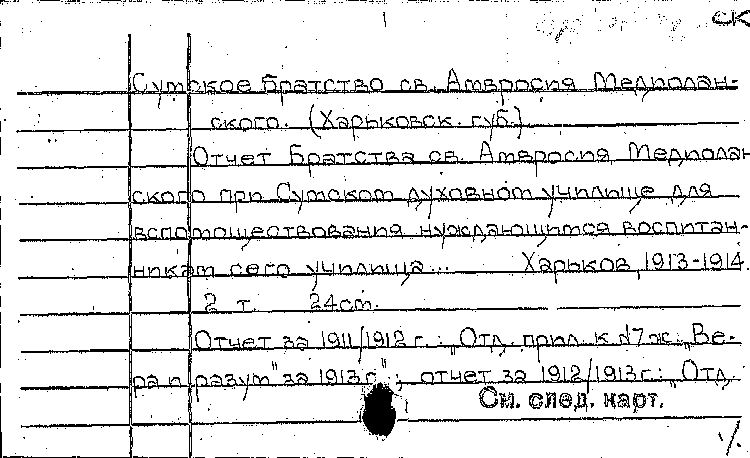 СК
Сумское Братство св. Амвросия Медиолан-
ского. (Харьковск. губ.)
Отчет Братства св. Амвросия Медиолан
ского при Сумском духовном училище для
вспомоществования нуждающимся воспитан-
никам сего училища... Харьков, 1913-1914.
2 т. 24см.
Отчет за 1911/1912 г.: „Отд. прил. к ж: „Ве-
ра и разум" за 1913 г."; отчет за 1912/1913 г.: „Отд.
См. след. карт.